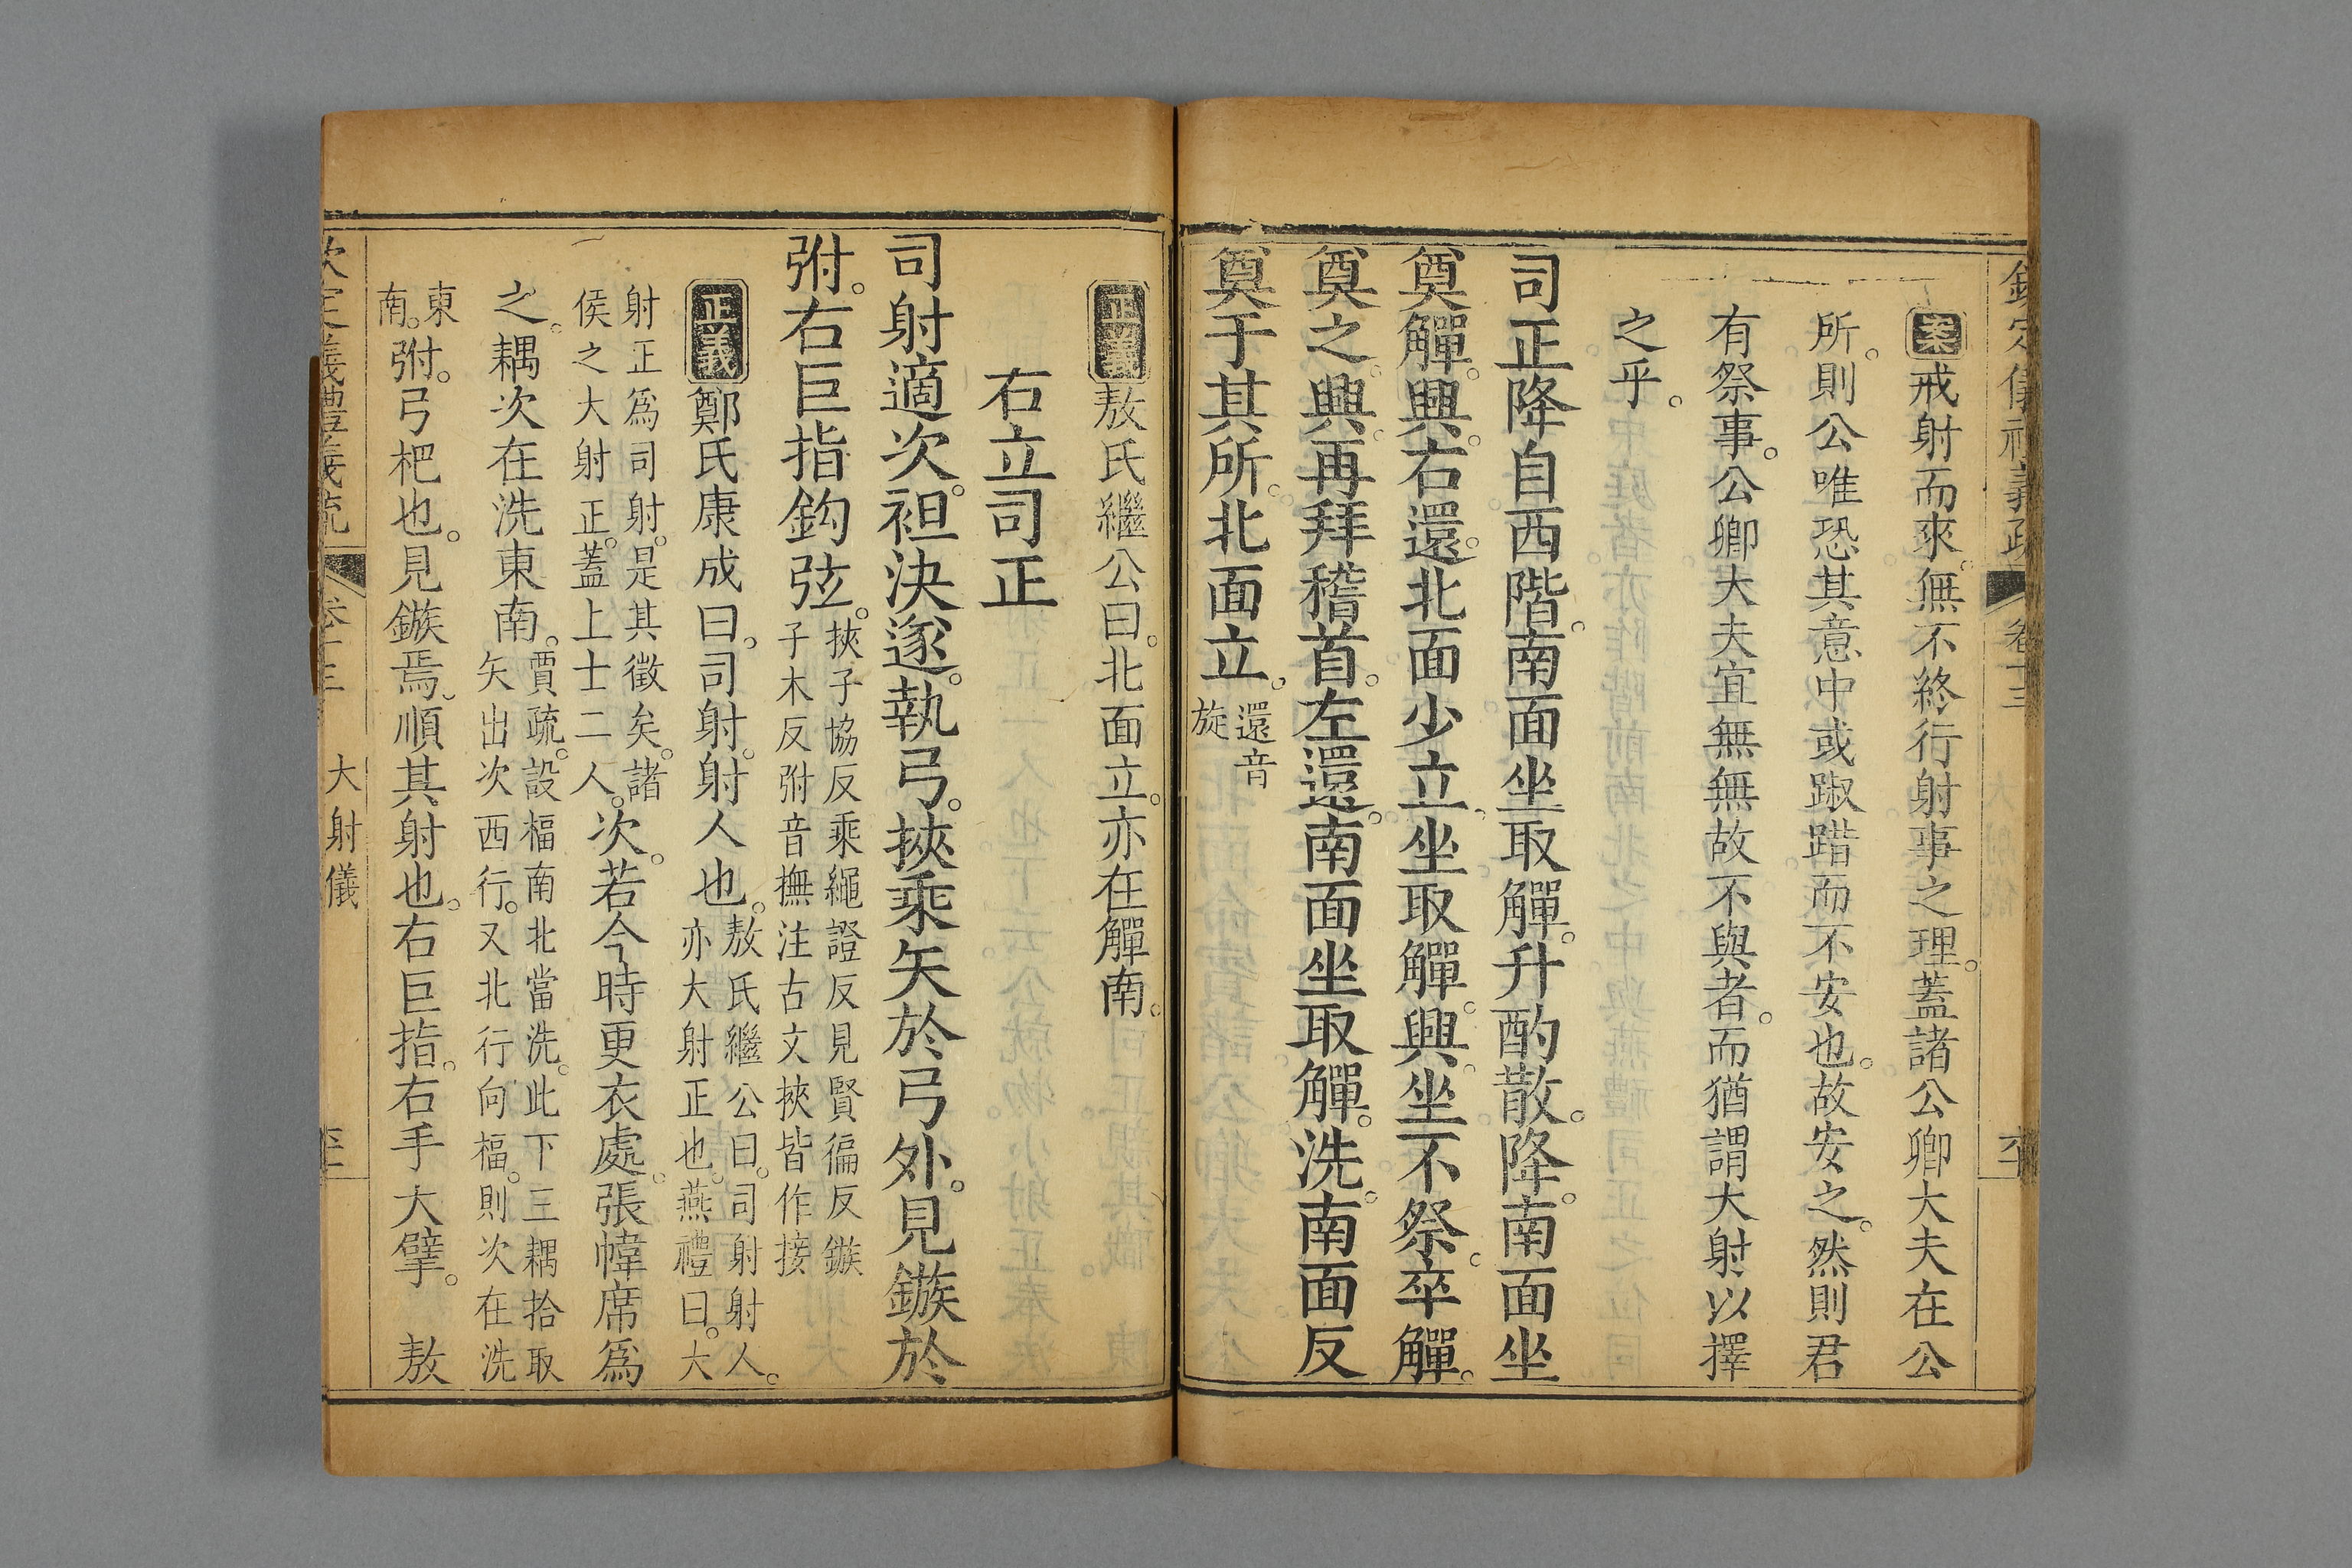 欽定儀禮義疏 卷十三
案戒射而來。無不終行射事之理。蓋諸公卿大夫在公
所。則公唯恐其意中或踧踖而不安也。故安之。然則君
有祭事。公卿大夫宜無無故不與者。而猶謂大射以擇
之乎。
司正降自西階。南面坐取觶。升酌散。降。南面坐
奠觶。興。右還。北面少立、坐取觶。興。坐不祭。卒觶。
奠之。興。再拜稽首。左還。南面坐取觶。洗。南面反
奠于其所。北面立。還音
旋
正義敖氏繼公曰。北面立。亦在觶南。
右立司正
司射適次。袒決遂。執弓。挾乘矢於弓外。見鏃於
弣。右巨指鈎弦。挾子協反乘繩證反見賢徧反鏃
子木反弣音撫注古文挾皆作接
正義鄭氏康成曰。司射。射人也。敖氏繼公曰。司射射人。
亦大射正也。燕禮曰。大
射正爲司射。是其徵矣。諸
侯之大射正。蓋上士二人。次。若今時更衣處。張幃席爲
之。耦次在洗東南。賈疏。設楅南北當洗。此下三耦拾取
矢出次西行。又北行向楅。則次在洗
東
南。弣。弓杷也。見鏃焉。順其射也。右巨指。右手大擘。 敖
欽定義禮義疏 卷十三 大射儀